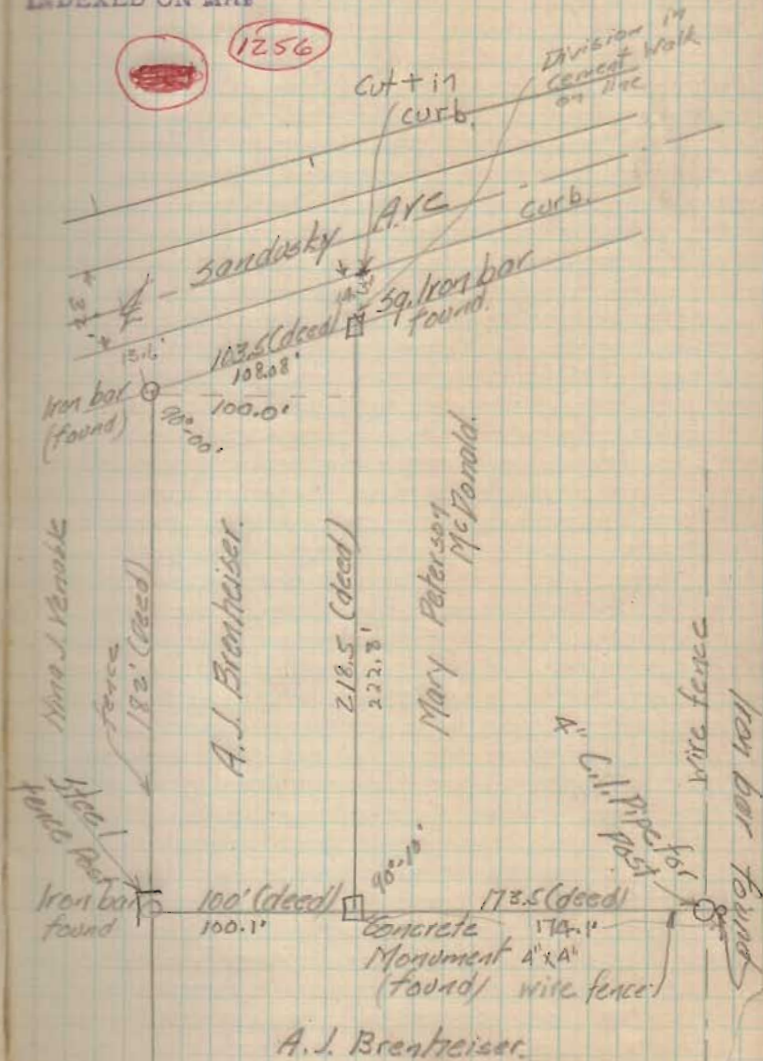 INDEXED ON MAP
1256
Cut + in
curb.
Division in
cement walk
on line
Sandusky Ave
curb.
Sq. Iron bar
found.
28'
15.6'
103.5 (deed)
108.08'
100.0'
Iron bar
(found)
90°-00'
Nina J. Venable
fence
182' (deed)
A.J. Brenheiser.
218.5 (deed)
222.8'
Mary Peterson
McDonald.
wire fence
Iron bar found
4" C.I. Pipe for
post
Steel
fence post
90°-10'
Iron bar
found
100' (deed)
100.1'
173.5 (deed)
174.1'
Concrete
Monument 4"x4"
(found)
wire fence
A.J. Brenheiser.